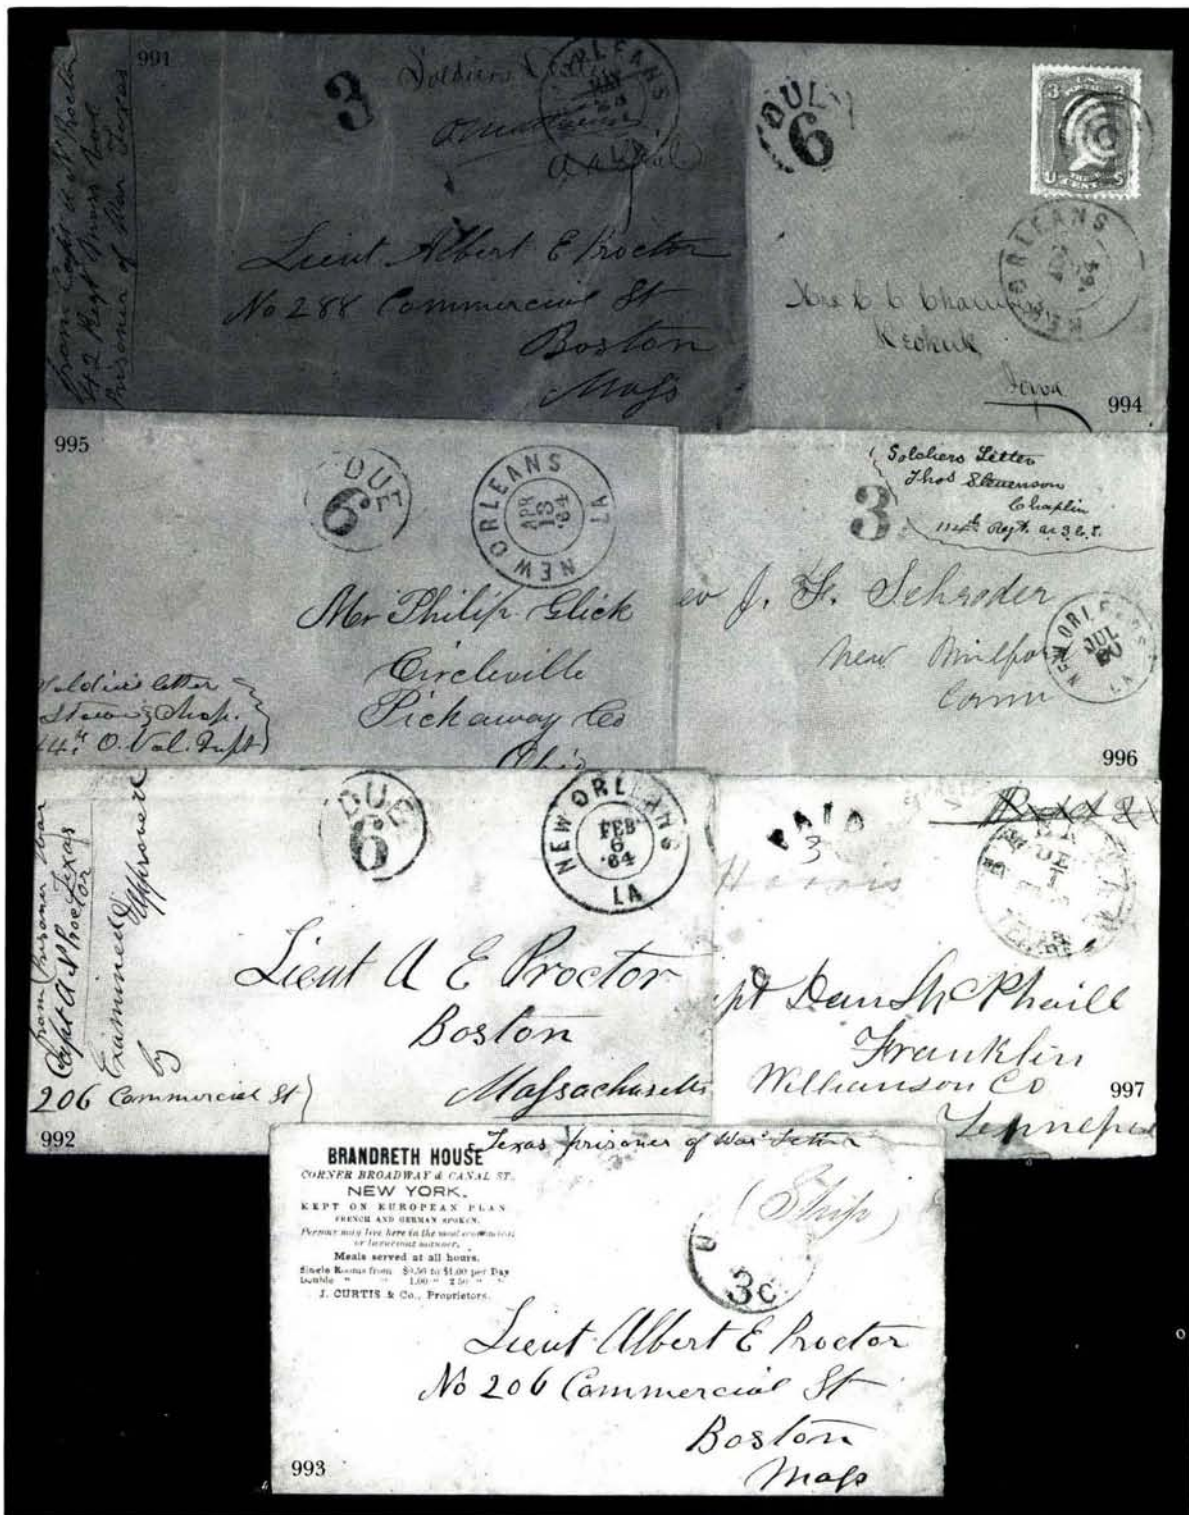 991
from Capt A N Proctor
42 Regt Mass Vol
Prisoner of War Texas
3
Soldiers
ORLEANS
MAY
24
Lieut Albert E Proctor
No 288 Commercial St
Boston
Mass
DUE
6
U S
3 3
NEW ORLEANS
'64
Mrs C C
Keokuk
Iowa
994
995
DUE
6
NEW ORLEANS LA
APR
13
'64
Mr Philip Glick
Circleville
Pickaway Co
Ohio
Soldiers letter
Chap.
O. Vol. Inft
3
Soldiers Letter
Thos Stevenson
Chaplin
114th Regt
J. F. Schroder
New Milford
Conn
NEW ORLEANS LA
JUL
20
996
from Prisoner War
Capt A N Proctor Texas
Examined & Approved
by
DUE
6
NEW ORLEANS
FEB
6
'64
LA
Lieut A E Proctor
Boston
Massachusetts
206 Commercial St
992
PAID
3
Harris
TEXAS
Capt Dan McPhaill
Franklin
Williamson Co
Tennessee
997
Texas prisoner of War Letter
BRANDRETH HOUSE
CORNER BROADWAY & CANAL ST.
NEW YORK.
KEPT ON EUROPEAN PLAN
FRENCH AND GERMAN SPOKEN.
Persons may live here in the most economical
or luxurious manner.
Meals served at all hours.
Single Rooms from $0.50 to $1.00 per Day
Double " " 1.00 " 2.50 " "
J. CURTIS & Co., Proprietors.
(Ship)
3c
Lieut Albert E Proctor
No 206 Commercial St
Boston
Mass
993